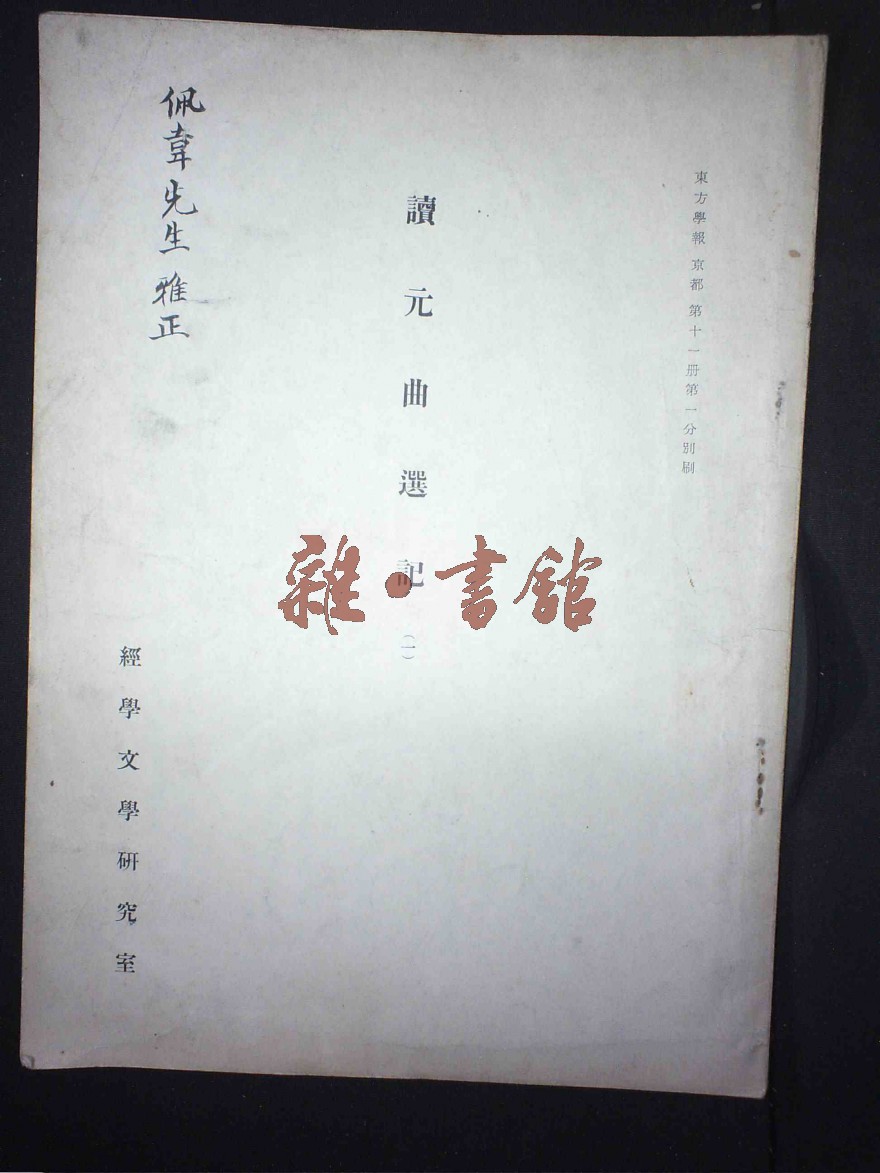 東方學報 京都 第十一册第一分別刷
讀元曲選記(一)
佩韋先生 雅正
經學文學研究室
雜·書館